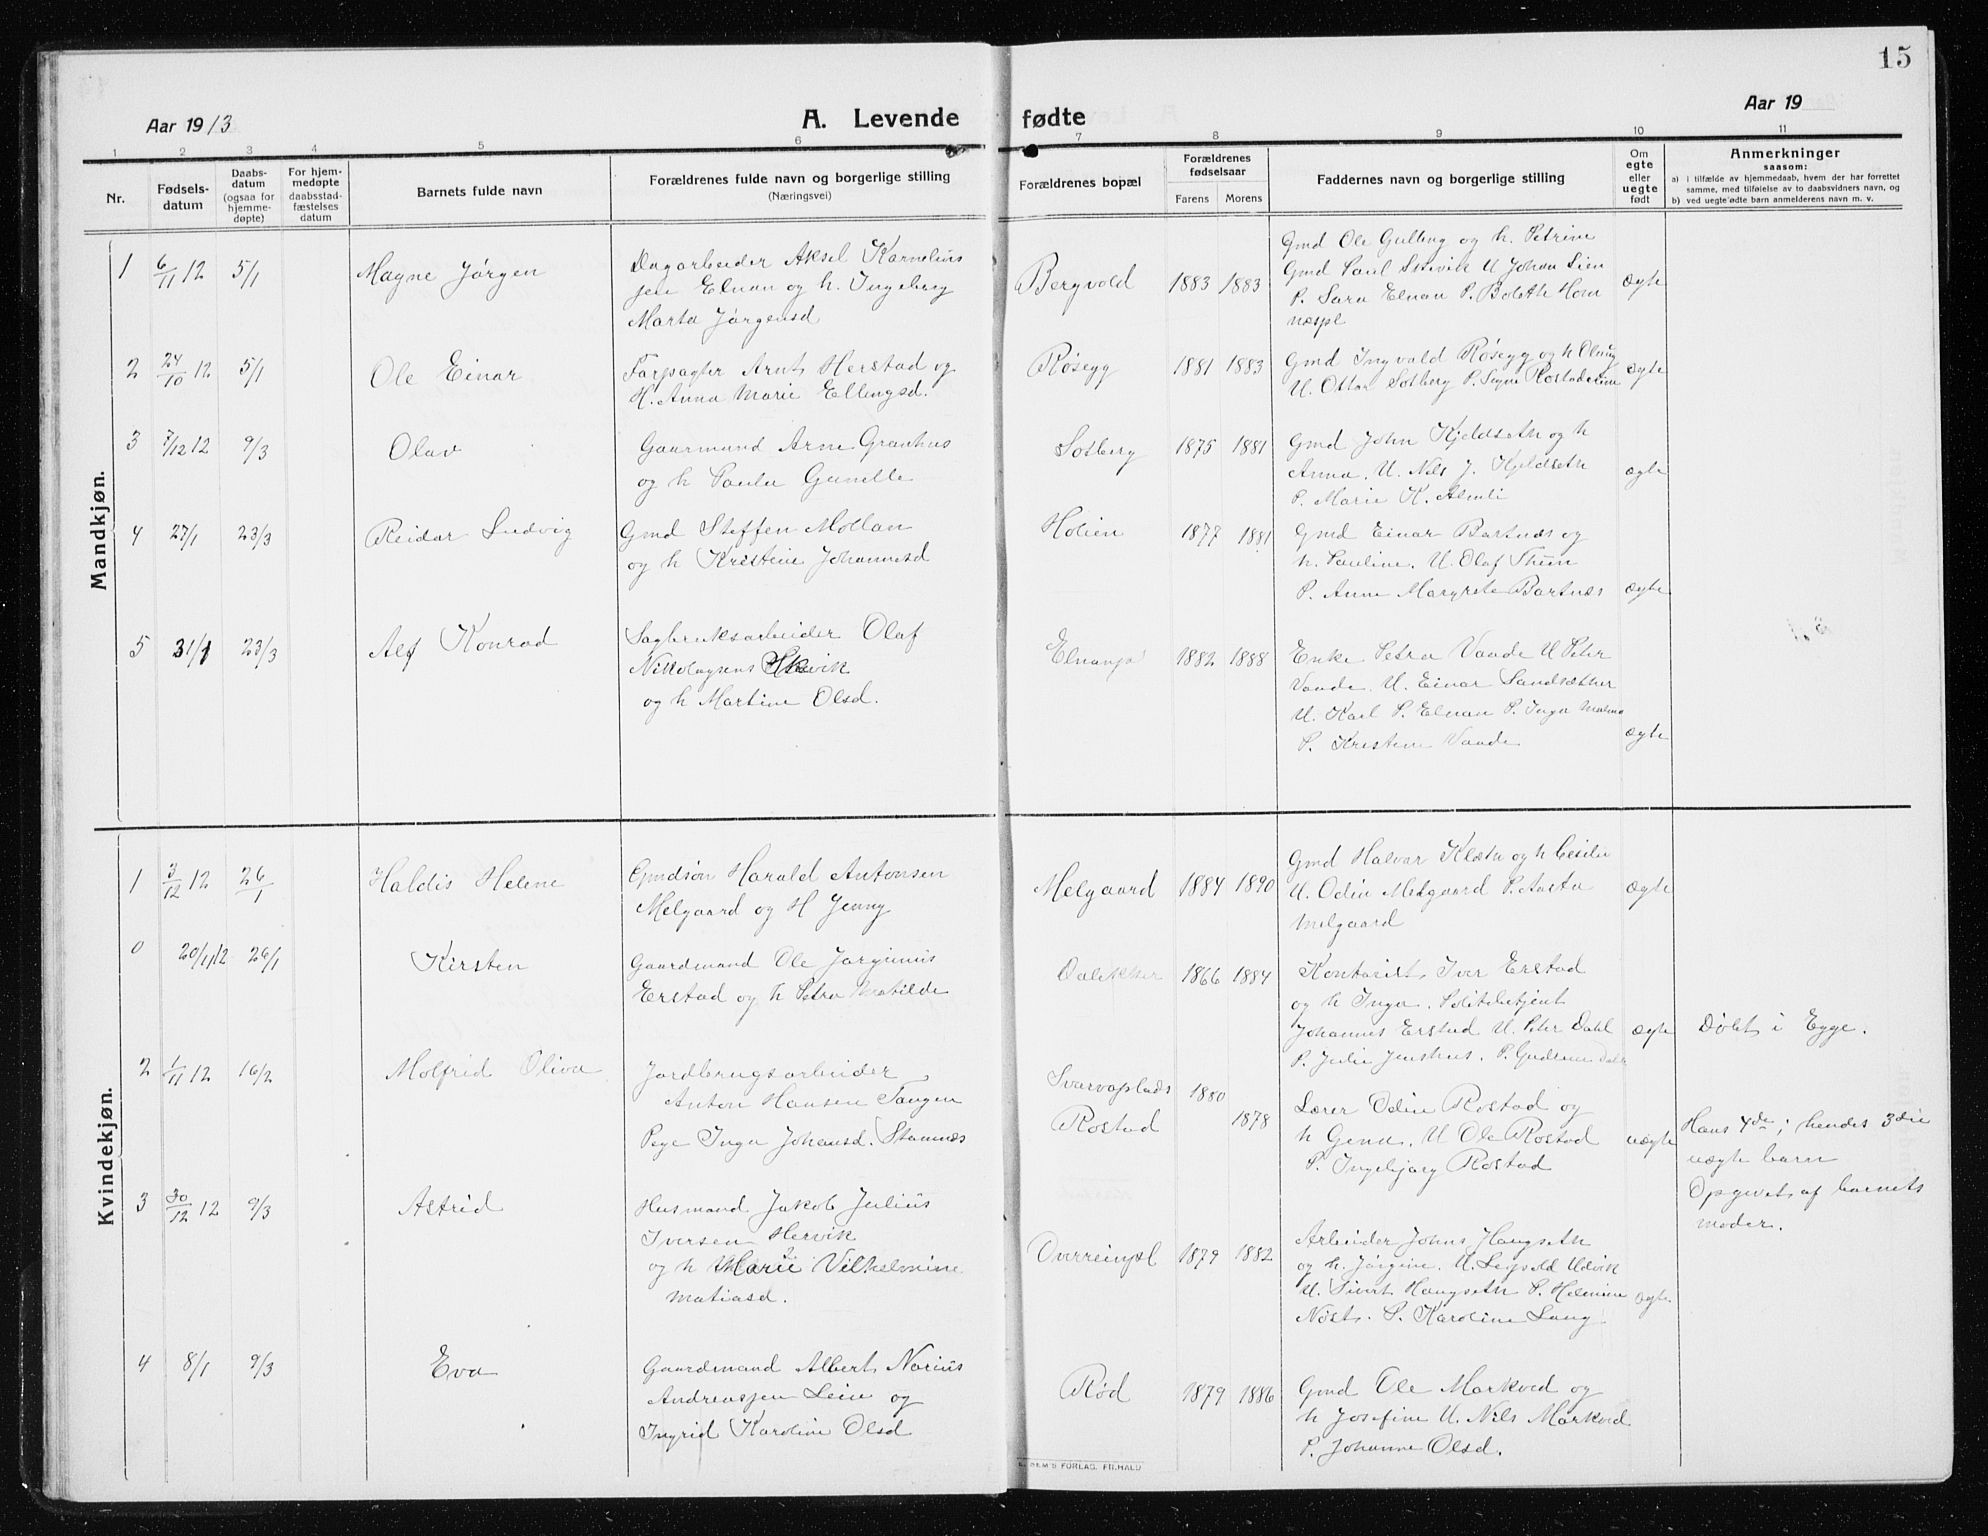 15
Aar 1913
A. Levende fødte
Aar 19
1 2 3 4 5 6 7 8 9 10 11
Nr.
Fødsels-
datum
Daabs-
datum
(ogsaa for
hjemme-
døpte)
For hjem-
medøpte
daabsstad-
fæstelses
datum
Barnets fulde navn
Forældrenes fulde navn og borgerlige stilling
(Næringsvei)
Forældrenes bopæl
Forældrenes
fødselsaar
Farens Morens
Faddernes navn og borgerlige stilling
Om
egte
eller
uegte
født
Anmerkninger
saasom:
a) i tilfælde av hjemmedaab, hvem der har forrettet
samme, med tilføielse av to daabsvidners navn, og
b) ved uegte fødte barn anmelderens navn m. v.
Mandkjøn.
1 6/11 12 5/1 Magne Jørgen
Dagarbeider Aksel Kornelius
sen Elnan og h. Ingeborg
Marta Jørgensd
Bergvold 1883 1883
Gmd Ole Gulling og h. Petrine
Gmd Paul U Johan Lien
P. Sara Elnan P. Boleth
næspl
ægte
2 24/10 12 5/1 Ole Einar
Forpagter Arnt Herstad og
H. Anna Marie Ellingsd.
Røsegg 1881 1883
Gmd Ingvald Røsegg og h
U. Ottar Solberg P. Signe
ægte
3 7/12 12 9/3 Olav
Gaarmand Arne Granhus
og h Paula Gunelle
Solberg 1875 1881
Gmd John Kjeldseth og h
Anna. U. Nels J. Kjeldseth
P. Marie K. Almli
ægte
4 27/1 23/3 Reidar Ludvig
Gmd Steffen Mollan
og h Kristine Johannesd
Holien 1877 1881
Gmd Einar Bartnæs og
h. Pauline. U. Olaf Thun
P. Anne Margrete Bartnæs
ægte
5 31/1 23/3 Alf Konrad
Sagbruksarbeider Olaf
Nikolaysens
og h Martine Olsd.
1882 1888
Enke Petra Vaade U Peter
Vaade. U. Einar Sandsæther
U. Karl P. Elnan P. Inga
P. Kristine Vaade
ægte
Kvindekjøn.
1 3/12 12 26/1 Haldis Helene
Gmdsøn Harald Antonsen
Melgaard og H Jenny
Melgaard 1884 1890
Gmd Halvar og h Cesilie
U. Odin Melgaard P. Aasta
Melgaard
ægte
0 20/11 12 26/1 Kirsten
Gaardmand Ole Jørginius
Erstad og h Petra Matilde
1866 1884
Kontorist Iver Erstad
og h Inga. Politibetjent
Johannes Erstad U. Peter Dahl
P. Julie Jenshus. P. Gudrun Dahl
ægte
Døbt i Egge.
2 1/11 12 16/2 Molfrid Oliva
Jordbrugsarbeider
Anton Hansen Tangen
Pige Inga Johansd. Stamnæs
Svarvaplads
Rostad
1880 1878
Lærer Odin Rostad og
h Gena. U Ole Rostad
P. Ingebjørg Rostad
uægte
Hans 4de; hendes 3die
uægte barn
Opgivet af barnets
moder.
3 30/12 12 9/3 Astrid
Husmand Jakob Julius
Iversen Hervik
og h Marie Vilhelmine
Matiasd.
Overreinspl 1879 1882
Arbeider Johns Haugseth
og h. Jørgine. U. Leopold Udvik
U. Sivert Haugseth P. Helmine
Nøst. P. Karoline Lang
ægte
4 8/1 9/3 Eva
Gaardmand Albert Norius
Andreassen Lein og
Ingrid Karoline Olsd
Rød 1879 1886
Gmd Ole Markved og
h Josefine U. Nils Markved
P. Johanne Olsd.
FORLAG. FR.HALD